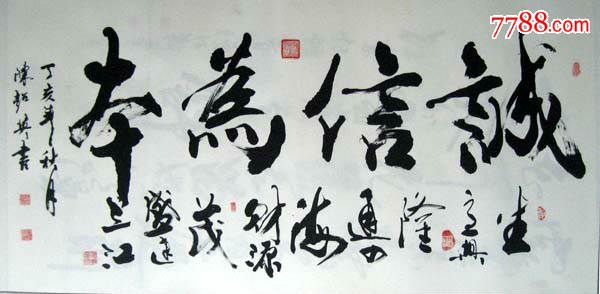 7788.com
誠信為本
生意興隆通四海財源茂盛達三江
丁亥年秋月
陳英書